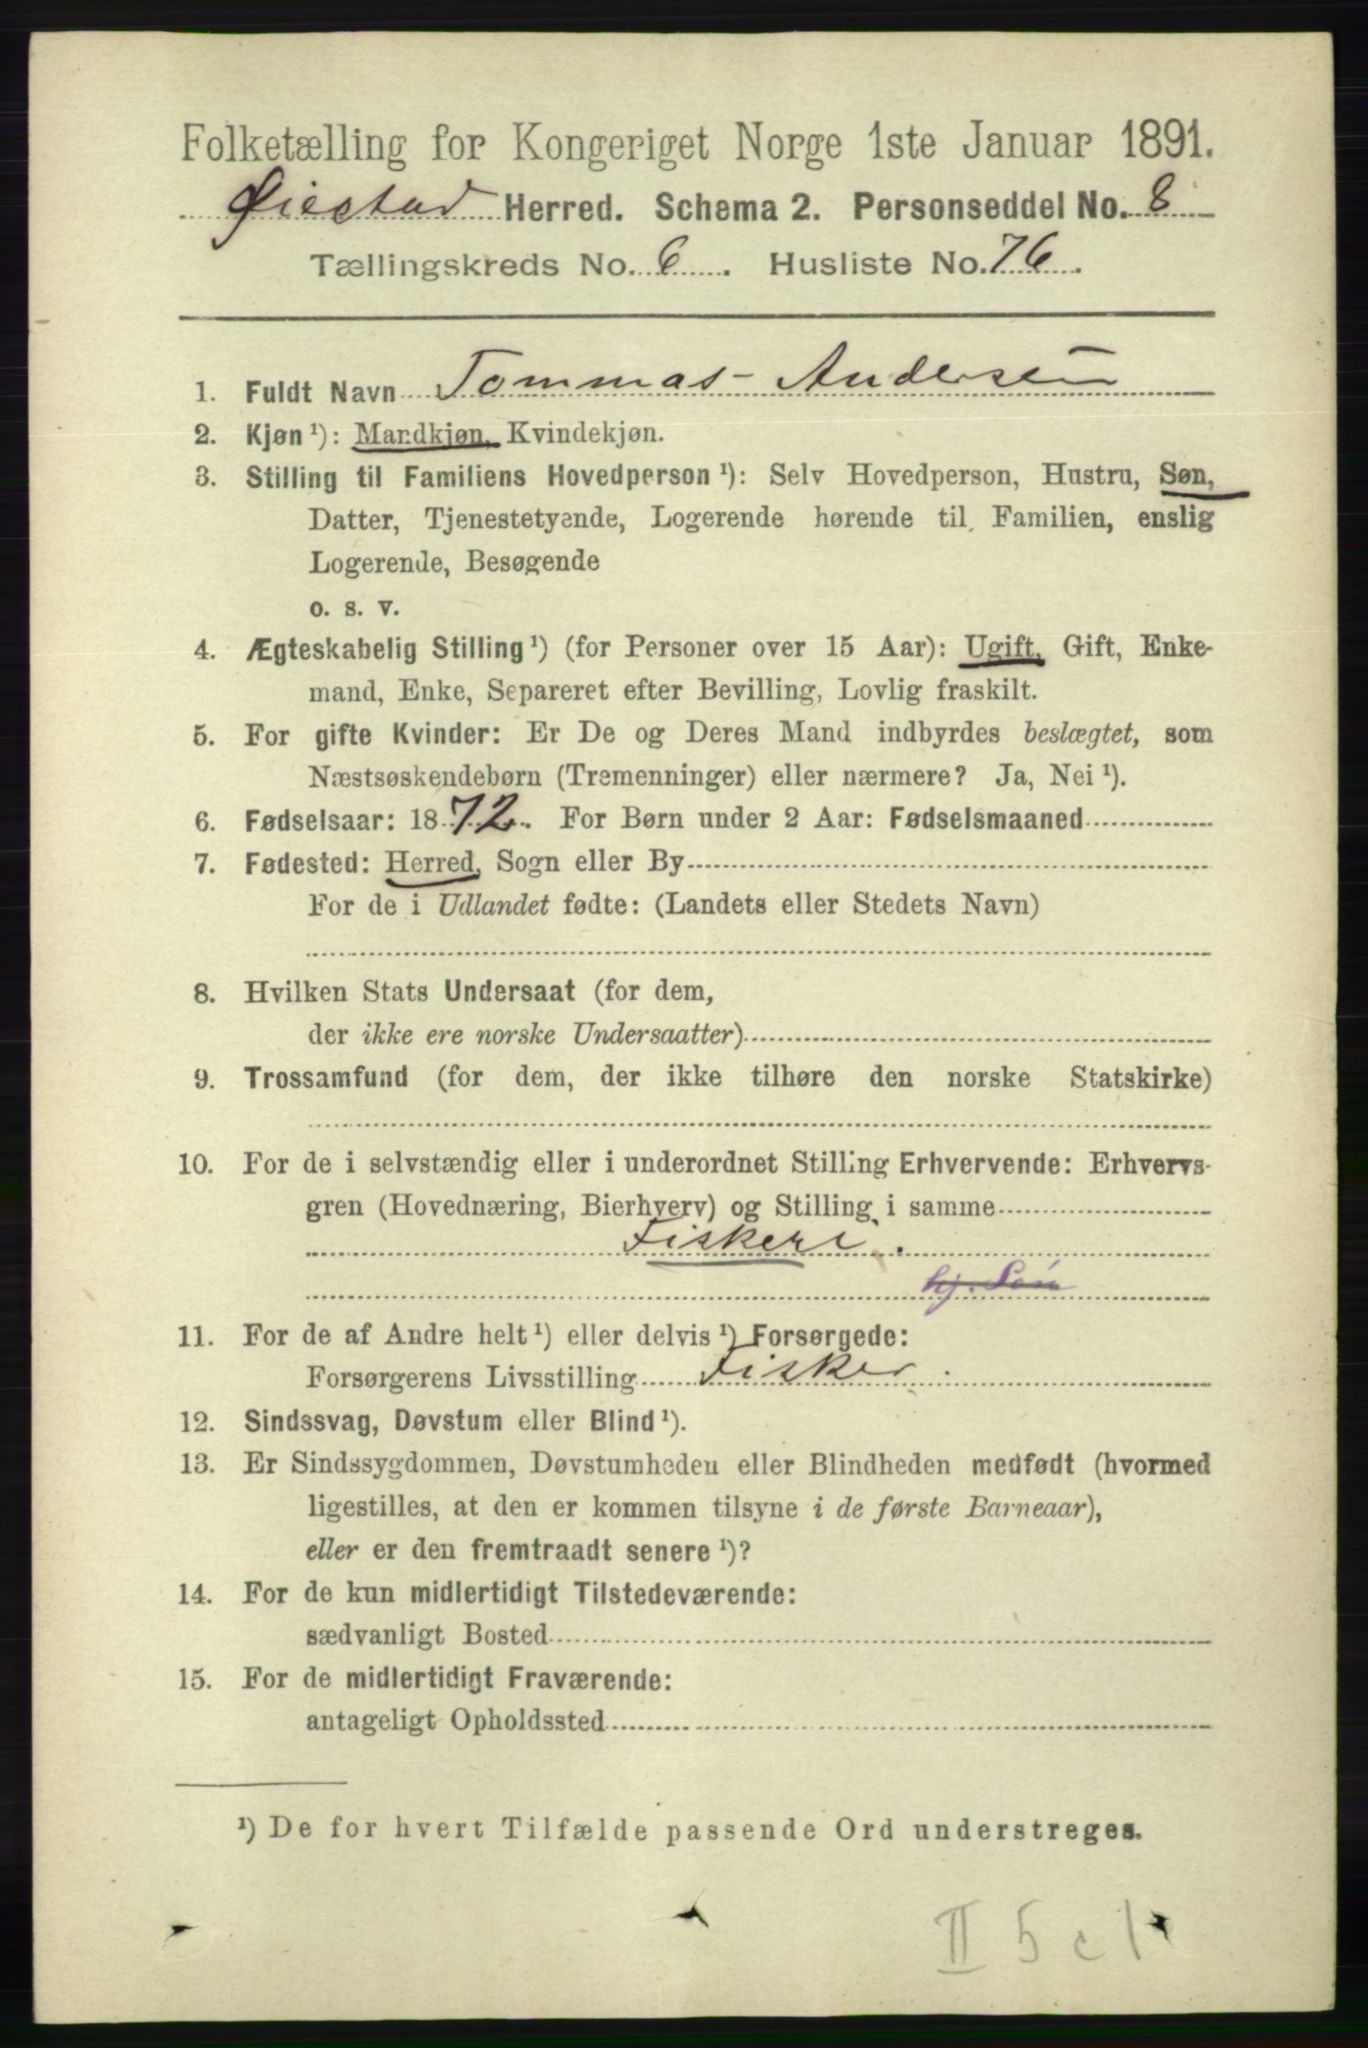 Folketælling for Kongeriget Norge 1ste Januar 1891.
Øiestad Herred. Schema 2. Personseddel No. 8
Tællingskreds No. 6. Husliste No. 76.
1. Fuldt Navn Tommas Andersen
2. Kjøn ¹): Mandkjøn, Kvindekjøn.
3. Stilling til Familiens Hovedperson ¹): Selv Hovedperson, Hustru, Søn,
Datter, Tjenestetyende, Logerende hørende til Familien, enslig
Logerende, Besøgende
o. s. v.
4. Ægteskabelig Stilling ¹) (for Personer over 15 Aar): Ugift, Gift, Enke-
mand, Enke, Separeret efter Bevilling, Lovlig fraskilt.
5. For gifte Kvinder: Er De og Deres Mand indbyrdes beslægtet, som
Næstsøskendebørn (Tremenninger) eller nærmere? Ja, Nei ¹).
6. Fødselsaar: 1872. For Børn under 2 Aar: Fødselsmaaned
7. Fødested: Herred, Sogn eller By
For de i Udlandet fødte: (Landets eller Stedets Navn)
8. Hvilken Stats Undersaat (for dem,
der ikke ere norske Undersaatter)
9. Trossamfund (for dem, der ikke tilhøre den norske Statskirke)
10. For de i selvstændig eller i underordnet Stilling Erhvervende: Erhvervs-
gren (Hovednæring, Bierhverv) og Stilling i samme
Fiskeri.
hj. Søn
11. For de af Andre helt ¹) eller delvis ¹) Forsørgede:
Forsørgerens Livsstilling Fisker.
12. Sindssvag, Døvstum eller Blind ¹).
13. Er Sindssygdommen, Døvstumheden eller Blindheden medfødt (hvormed
ligestilles, at den er kommen tilsyne i de første Barneaar),
eller er den fremtraadt senere ¹)?
14. For de kun midlertidigt Tilstedeværende:
sædvanligt Bosted
15. For de midlertidigt Fraværende:
antageligt Opholdssted
¹) De for hvert Tilfælde passende Ord understreges.
II 5 c 1